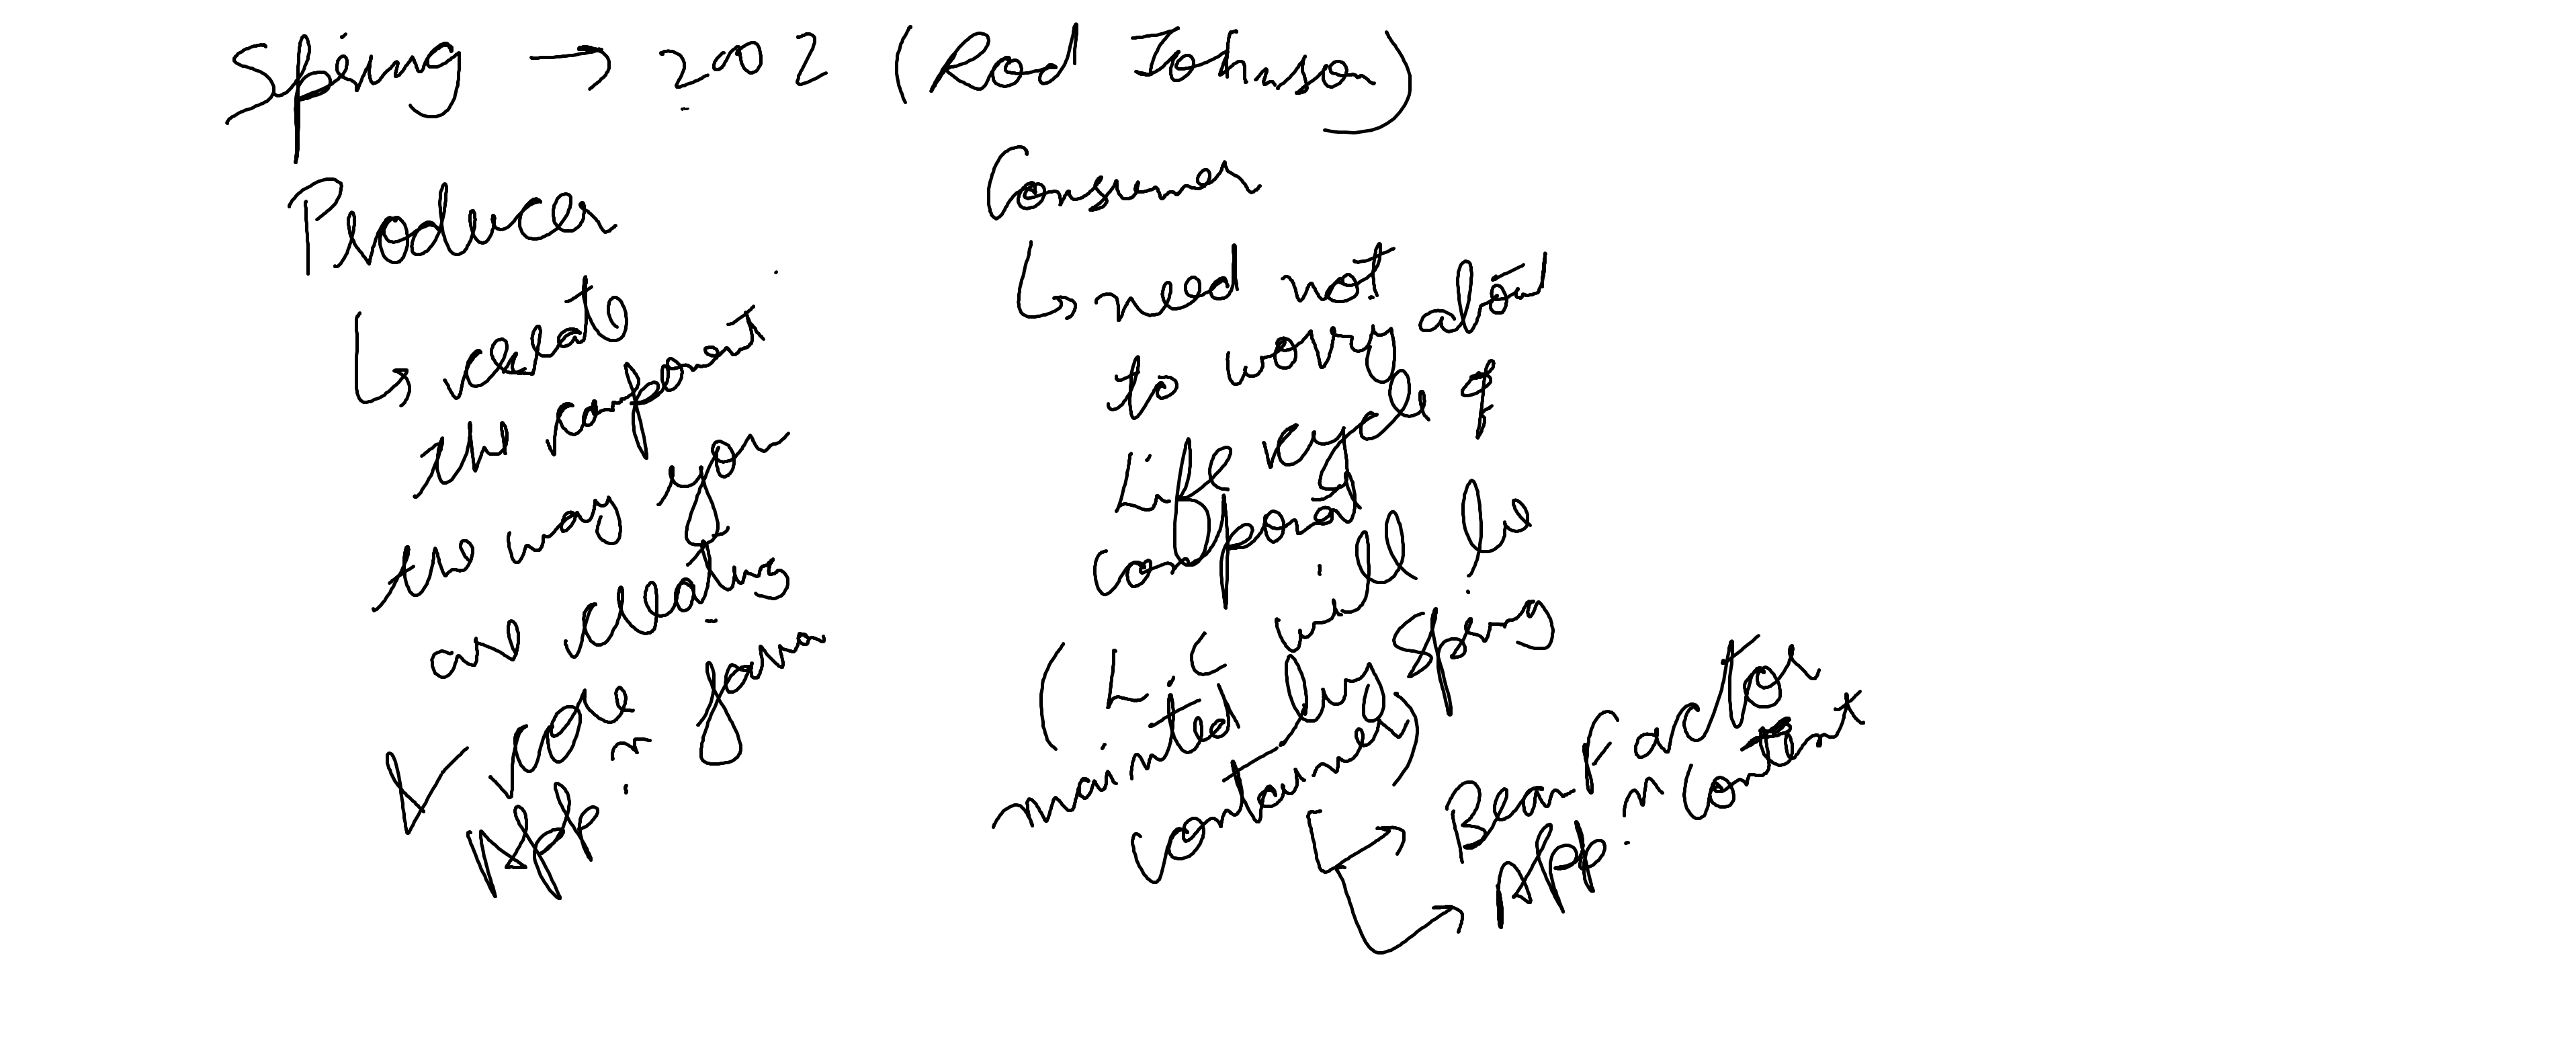 Spring → 2002 (Rod Johnson)
Producer
↳ create
the component
the way you
are creating
core java
Appn.
Consumer
↳ need not
to worry about
Life cycle of
component
(L.C will be
mainted by Spring
container)
→ BeanFactor
→ Appn. Context